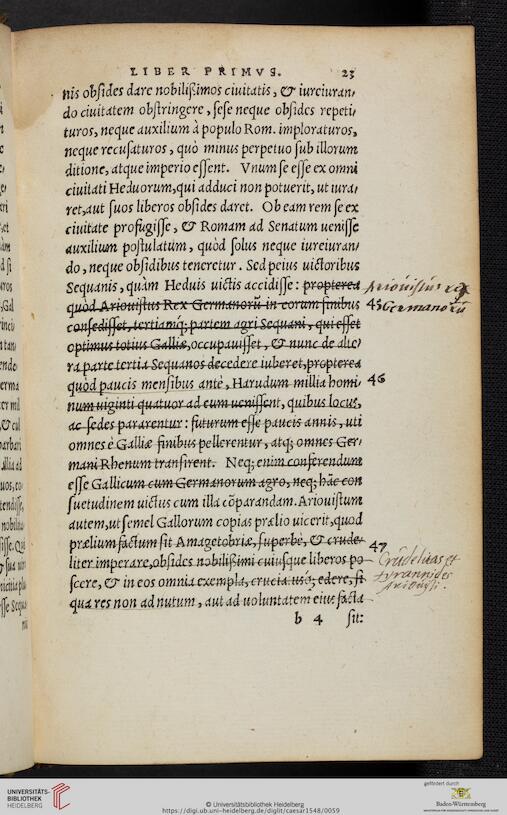 LIBER PRIMVS. 23
nis obsides dare nobilißimos ciuitatis, & iureiuran,
do ciuitatem obstringere, sese neque obsides repeti,
turos, neque auxilium à populo Rom. imploraturos,
neque recusaturos, quò minus perpetuo sub illorum
ditione, atque imperio essent. Vnum se esse ex omni
ciuitati Heduorum, qui adduci non potuerit, ut iura,
ret, aut suos liberos obsides daret. Ob eam rem se ex
ciuitate profugisse, & Romam ad Senatum uenisse
auxilium postulatum, quòd solus neque iureiuran,
do, neque obsidibus teneretur. Sed peius uictoribus
Sequanis, quàm Heduis uictis accidisse: propterea
Ariouistus rex
quòd Ariouistus Rex Germanorũ in eorum finibus
45 Germanorũ
consedisset, tertiamq́; partem agri Sequani, qui esset
optimus totius Galliæ, occupauisset, & nunc de alte,
ra parte tertia Sequanos decedere iuberet, propterea
quòd paucis mensibus antè, Harudum millia homi,
46
num uiginti quatuor ad eum uenissent, quibus locus,
ac sedes pararentur: futurum esse paucis annis, uti
omnes è Galliæ finibus pellerentur, atq; omnes Ger,
mani Rhenum transirent. Neq; enim conferendum
esse Gallicum cum Germanorum agro, neq; hãc con
suetudinem uictus cum illa cõparandam. Ariouistum
autem, ut semel Gallorum copias prælio uicerit, quod
prælium factum sit Amagetobriæ, superbè, & crude,
47
liter imperare, obsides nobilißimi cuiusque liberos po
Crudelitas et
scere, & in eos omnia exempla, cruciatusq́; edere, si
tyrannides
Ariouisti.
qua res non ad nutum, aut ad uoluntatem eius facta
b 4 sit:
UNIVERSITÄTS-
BIBLIOTHEK
HEIDELBERG
© Universitätsbibliothek Heidelberg
https://digi.ub.uni-heidelberg.de/diglit/caesar1548/0059
gefördert durch
Baden-Württemberg